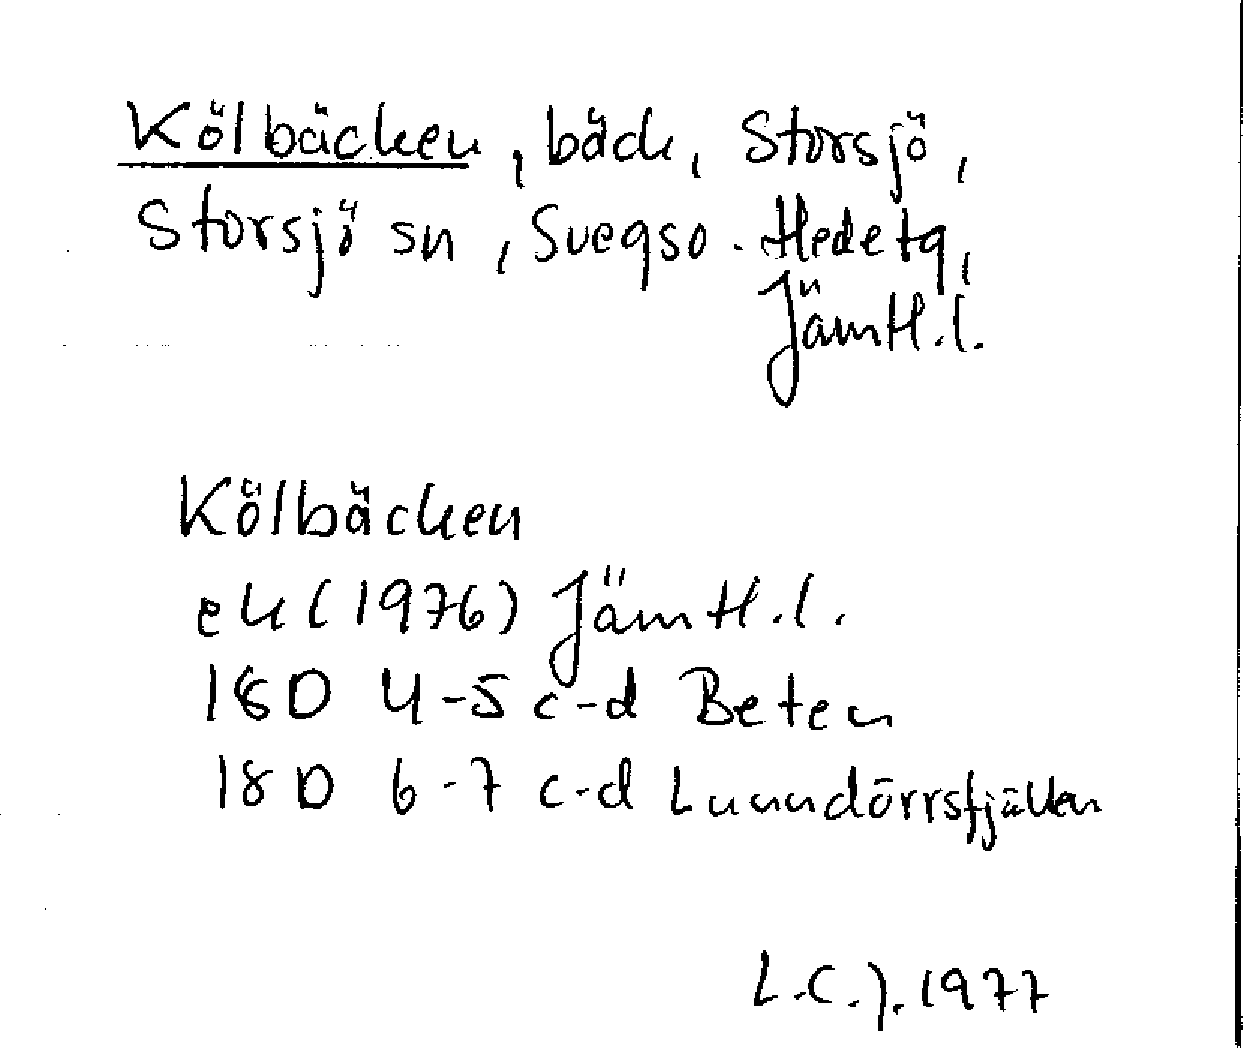 Kölbäcken, bäck, Storsjö,
Storsjö sn, Svegso. Hedetg,
Jämtl.l.
Kölbäcken
ek (1976) Jämtl.l.
18D 4-5 c-d Beten
18D 6-7 c-d Lunndörrsfjällen
L.C.J. 1977